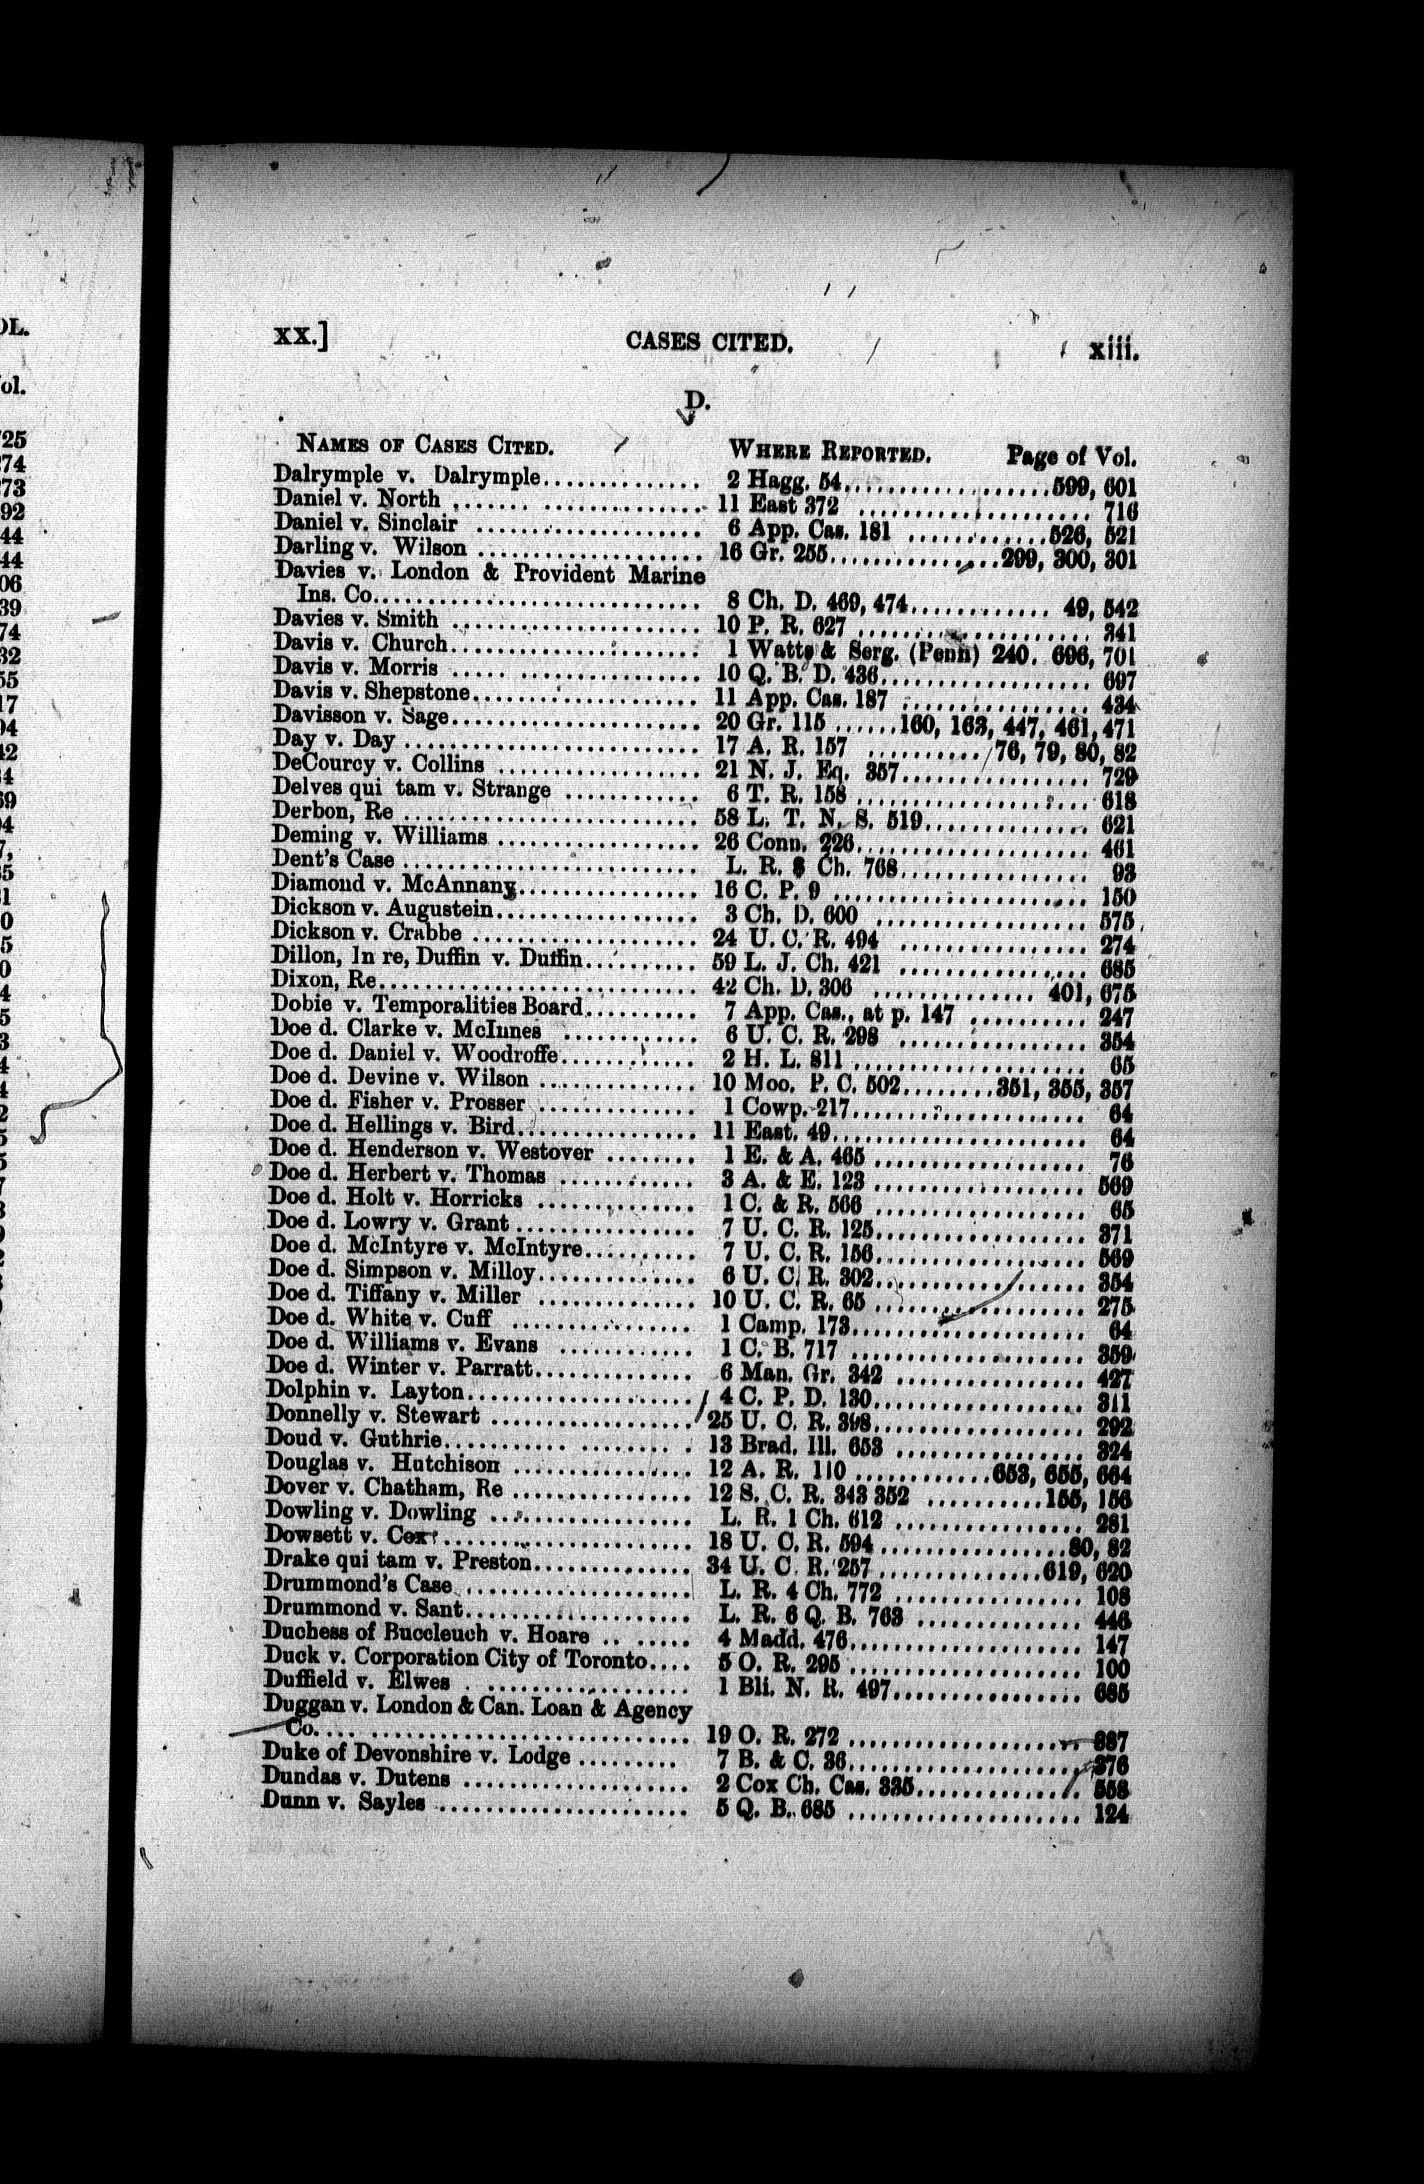 XX.] CASES CITED. xiii.
D.
NAMES OF CASES CITED. WHERE REPORTED. Page of Vol.
Dalrymple v. Dalrymple.............. 2 Hagg. 54..................599, 601
Daniel v. North ....................... 11 East 372 ..................... 716
Daniel v. Sinclair ..................... 6 App. Cas. 181 ............526, 521
Darling v. Wilson ..................... 16 Gr. 255...............299, 300, 301
Davies v. London & Provident Marine
Ins. Co.............................. 8 Ch. D. 469, 474............ 49, 542
Davies v. Smith ....................... 10 P. R. 627 ..................... 341
Davis v. Church....................... 1 Watts & Serg. (Penn) 240. 696, 701
Davis v. Morris ....................... 10 Q. B. D. 436.................. 697
Davis v. Shepstone..................... 11 App. Cas. 187 ................. 434
Davisson v. Sage....................... 20 Gr. 115 ......160, 163, 447, 461, 471
Day v. Day ........................... 17 A. R. 157 .......... 76, 79, 80, 82
DeCourcy v. Collins ................... 21 N. J. Eq. 357................. 729
Delves qui tam v. Strange ............ 6 T. R. 158 ..................... 618
Derbon, Re ........................... 58 L. T. N. S. 519.............. 621
Deming v. Williams ................... 26 Conn. 226..................... 461
Dent's Case ........................... L. R. 8 Ch. 768................. 93
Diamond v. McAnnany................. 16 C. P. 9 ....................... 150
Dickson v. Augustein................... 3 Ch. D. 600 ................... 575
Dickson v. Crabbe ..................... 24 U. C. R. 494 ................. 274
Dillon, In re, Duffin v. Duffin.......... 59 L. J. Ch. 421 ................. 685
Dixon, Re............................. 42 Ch. D. 306 .............. 401, 675
Dobie v. Temporalities Board.......... 7 App. Cas., at p. 147 .......... 247
Doe d. Clarke v. McInnes ............ 6 U. C. R. 298 ................. 354
Doe d. Daniel v. Woodroffe............ 2 H. L. 811 ..................... 65
Doe d. Devine v. Wilson .............. 10 Moo. P. C. 502........351, 355, 357
Doe d. Fisher v. Prosser .............. 1 Cowp. 217..................... 64
Doe d. Hellings v. Bird................ 11 East. 49....................... 64
Doe d. Henderson v. Westover ........ 1 E. & A. 465 ................... 76
Doe d. Herbert v. Thomas ............ 3 A. & E. 123 ................... 569
Doe d. Holt v. Horricks .............. 1 C. & R. 566 ................... 65
Doe d. Lowry v. Grant ................ 7 U. C. R. 125................... 371
Doe d. McIntyre v. McIntyre.......... 7 U. C. R. 156................... 569
Doe d. Simpson v. Milloy.............. 6 U. C. R. 302................... 354
Doe d. Tiffany v. Miller .............. 10 U. C. R. 65 ................... 275
Doe d. White v. Cuff ................ 1 Camp. 173..................... 64
Doe d. Williams v. Evans ............ 1 C. B. 717 ..................... 359
Doe d. Winter v. Parratt.............. 6 Man. Gr. 342 ................. 427
Dolphin v. Layton..................... 4 C. P. D. 130................... 311
Donnelly v. Stewart ................... 25 U. C. R. 398................... 292
Doud v. Guthrie....................... 13 Brad. Ill. 653 ................. 324
Douglas v. Hutchison ................ 12 A. R. 110 ............653, 655, 664
Dover v. Chatham, Re ................ 12 S. C. R. 343 352 ..........155, 156
Dowling v. Dowling ................... L. R. 1 Ch. 612 ................. 281
Dowsett v. Cox ....................... 18 U. C. R. 594.................80, 82
Drake qui tam v. Preston.............. 34 U. C. R. 257 ..............619, 620
Drummond's Case ..................... L. R. 4 Ch. 772 ................. 108
Drummond v. Sant..................... L. R. 6 Q. B. 763 ............... 446
Duchess of Buccleuch v. Hoare .. ...... 4 Madd. 476..................... 147
Duck v. Corporation City of Toronto.... 5 O. R. 295 ..................... 100
Duffield v. Elwes . ................... 1 Bli. N. R. 497................. 685
Duggan v. London & Can. Loan & Agency
Co.... ............................. 19 O. R. 272 ..................... 887
Duke of Devonshire v. Lodge ......... 7 B. & C. 36..................... 376
Dundas v. Dutens ..................... 2 Cox Ch. Cas. 335............... 558
Dunn v. Sayles ....................... 5 Q. B. 685 ..................... 124